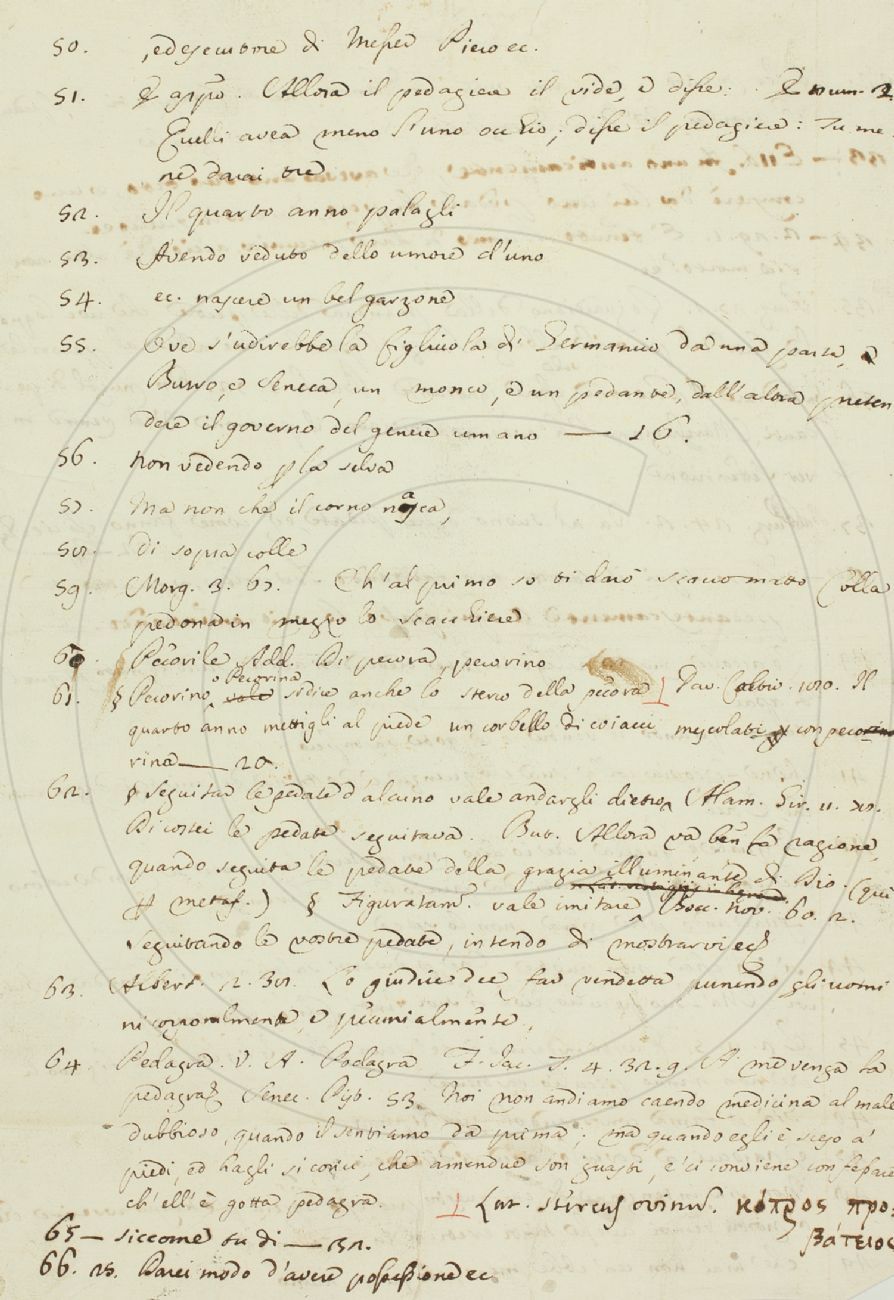 50. ed esecutore di Messer Piero ec.
51. Allora il pedagiere il vide, e disse: num. 2
Quelli avea meno l'uno occhio; disse il pedagiere: Tu me
ne darai tre
52. Il quarto anno palagli
53. Avendo veduto dello umore d'uno
54. ec. nascere un bel garzone
55. Ove s'udirebbe la figliuola di Germanico da una parte, e
Burro, e Seneca, un monco, e un pedante, dall'altra preten
dere il governo del genere umano — 16.
56. non vedendo p la selva
57. Ma non che il corno nasca,
58. Di sopra colle
59. Morg. 3. 67. Ch'al primo so ti darò scaccomatto Colla
pedona in mezzo lo scacchiere
60. Pecorile Add. Di pecora, pecorino
61. § Pecorino, o Pecorina si dice anche lo sterco della pecora ⊥ Dav. Coltiv. 180. Il
quarto anno mettigli al piede un corbello di coiacci mescolati con peco
rina — 20.
62. § Seguitar le pedate d'alcuno vale andargli dietro, Alam. Gir. 11. 78.
Di costei le pedate seguitava. But. Allora va ben la ragione,
quando seguita le pedate della grazia illuminante di Dio. (qui
p metaf.) § Figuratam. vale imitare, Bocc. nov. 60. 2.
Seguitando le vostre pedate, intendo di mostrarvi ec
63. Albert. 2. 38. Lo giudice dee far vendetta punendo gli uomi
ni corporalmente, e pecunialmente,
64 Pedagra. V. A. Podagra F. Jac. T. 4. 32. 9. A me venga la
pedagra Senec. Pist. 53. Noi non andiamo caendo medicina al male
dubbioso, quando il sentiamo da prima; ma quando egli è sceso a'
piedi, ed hagli sì corici, che amendue son guasti, e' ci conviene confessare
ch'ell'è gotta pedagra. ⊥ Lat. stercus ovinum. κόπρος προ-
βάτειος
65 — siccome tu di — 32.
66. 25. Darei modo d'avere possessione ec